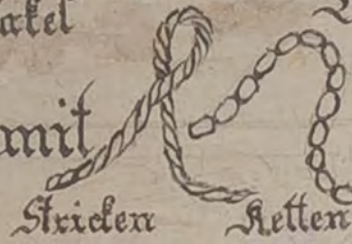 akel
mit
Stricken Ketten